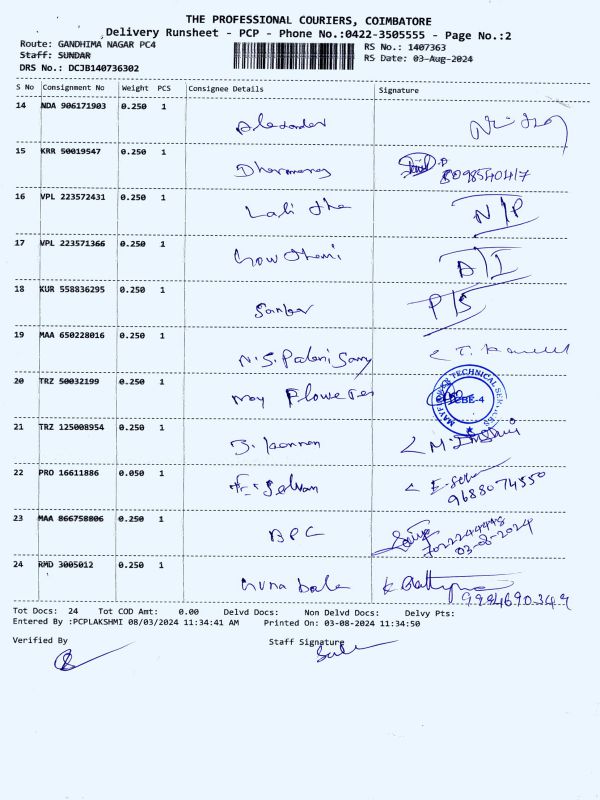 THE PROFESSIONAL COURIERS, COIMBATORE
Delivery Runsheet - PCP - Phone No.:0422-3505555 - Page No.:2
Route: GANDHIMA NAGAR PC4 RS No.: 1407363
Staff: SUNDAR RS Date: 03-Aug-2024
DRS No.: DCJB140736302
S No Consignment No Weight PCS Consignee Details Signature
14 NDA 906171903 0.250 1
Alexander
15 KRR 50019547 0.250 1
Dharmaraj
8098540417
16 VPL 223572431 0.250 1
Lalitha N/P
17 VPL 223571366 0.250 1
Gowthami A/I
18 KUR 558836295 0.250 1
Sankar P/S
19 MAA 650228016 0.250 1
N.S. Palani Samy
20 TRZ 50032199 0.250 1
May Flower MAYFLOWER TECHNICAL SER CBE-4
21 TRZ 125008954 0.250 1
J. Kannan
22 PRO 16611886 0.050 1
E. Selvan E. Selva
9688074550
23 MAA 866758806 0.250 1
BPC 7022244448
03-8-2024
24 RMD 3005012 0.250 1
Guna bala
9994690349
Tot Docs: 24 Tot COD Amt: 0.00 Delvd Docs: Non Delvd Docs: Delvy Pts:
Entered By :PCPLAKSHMI 08/03/2024 11:34:41 AM Printed On: 03-08-2024 11:34:50
Verified By Staff Signature